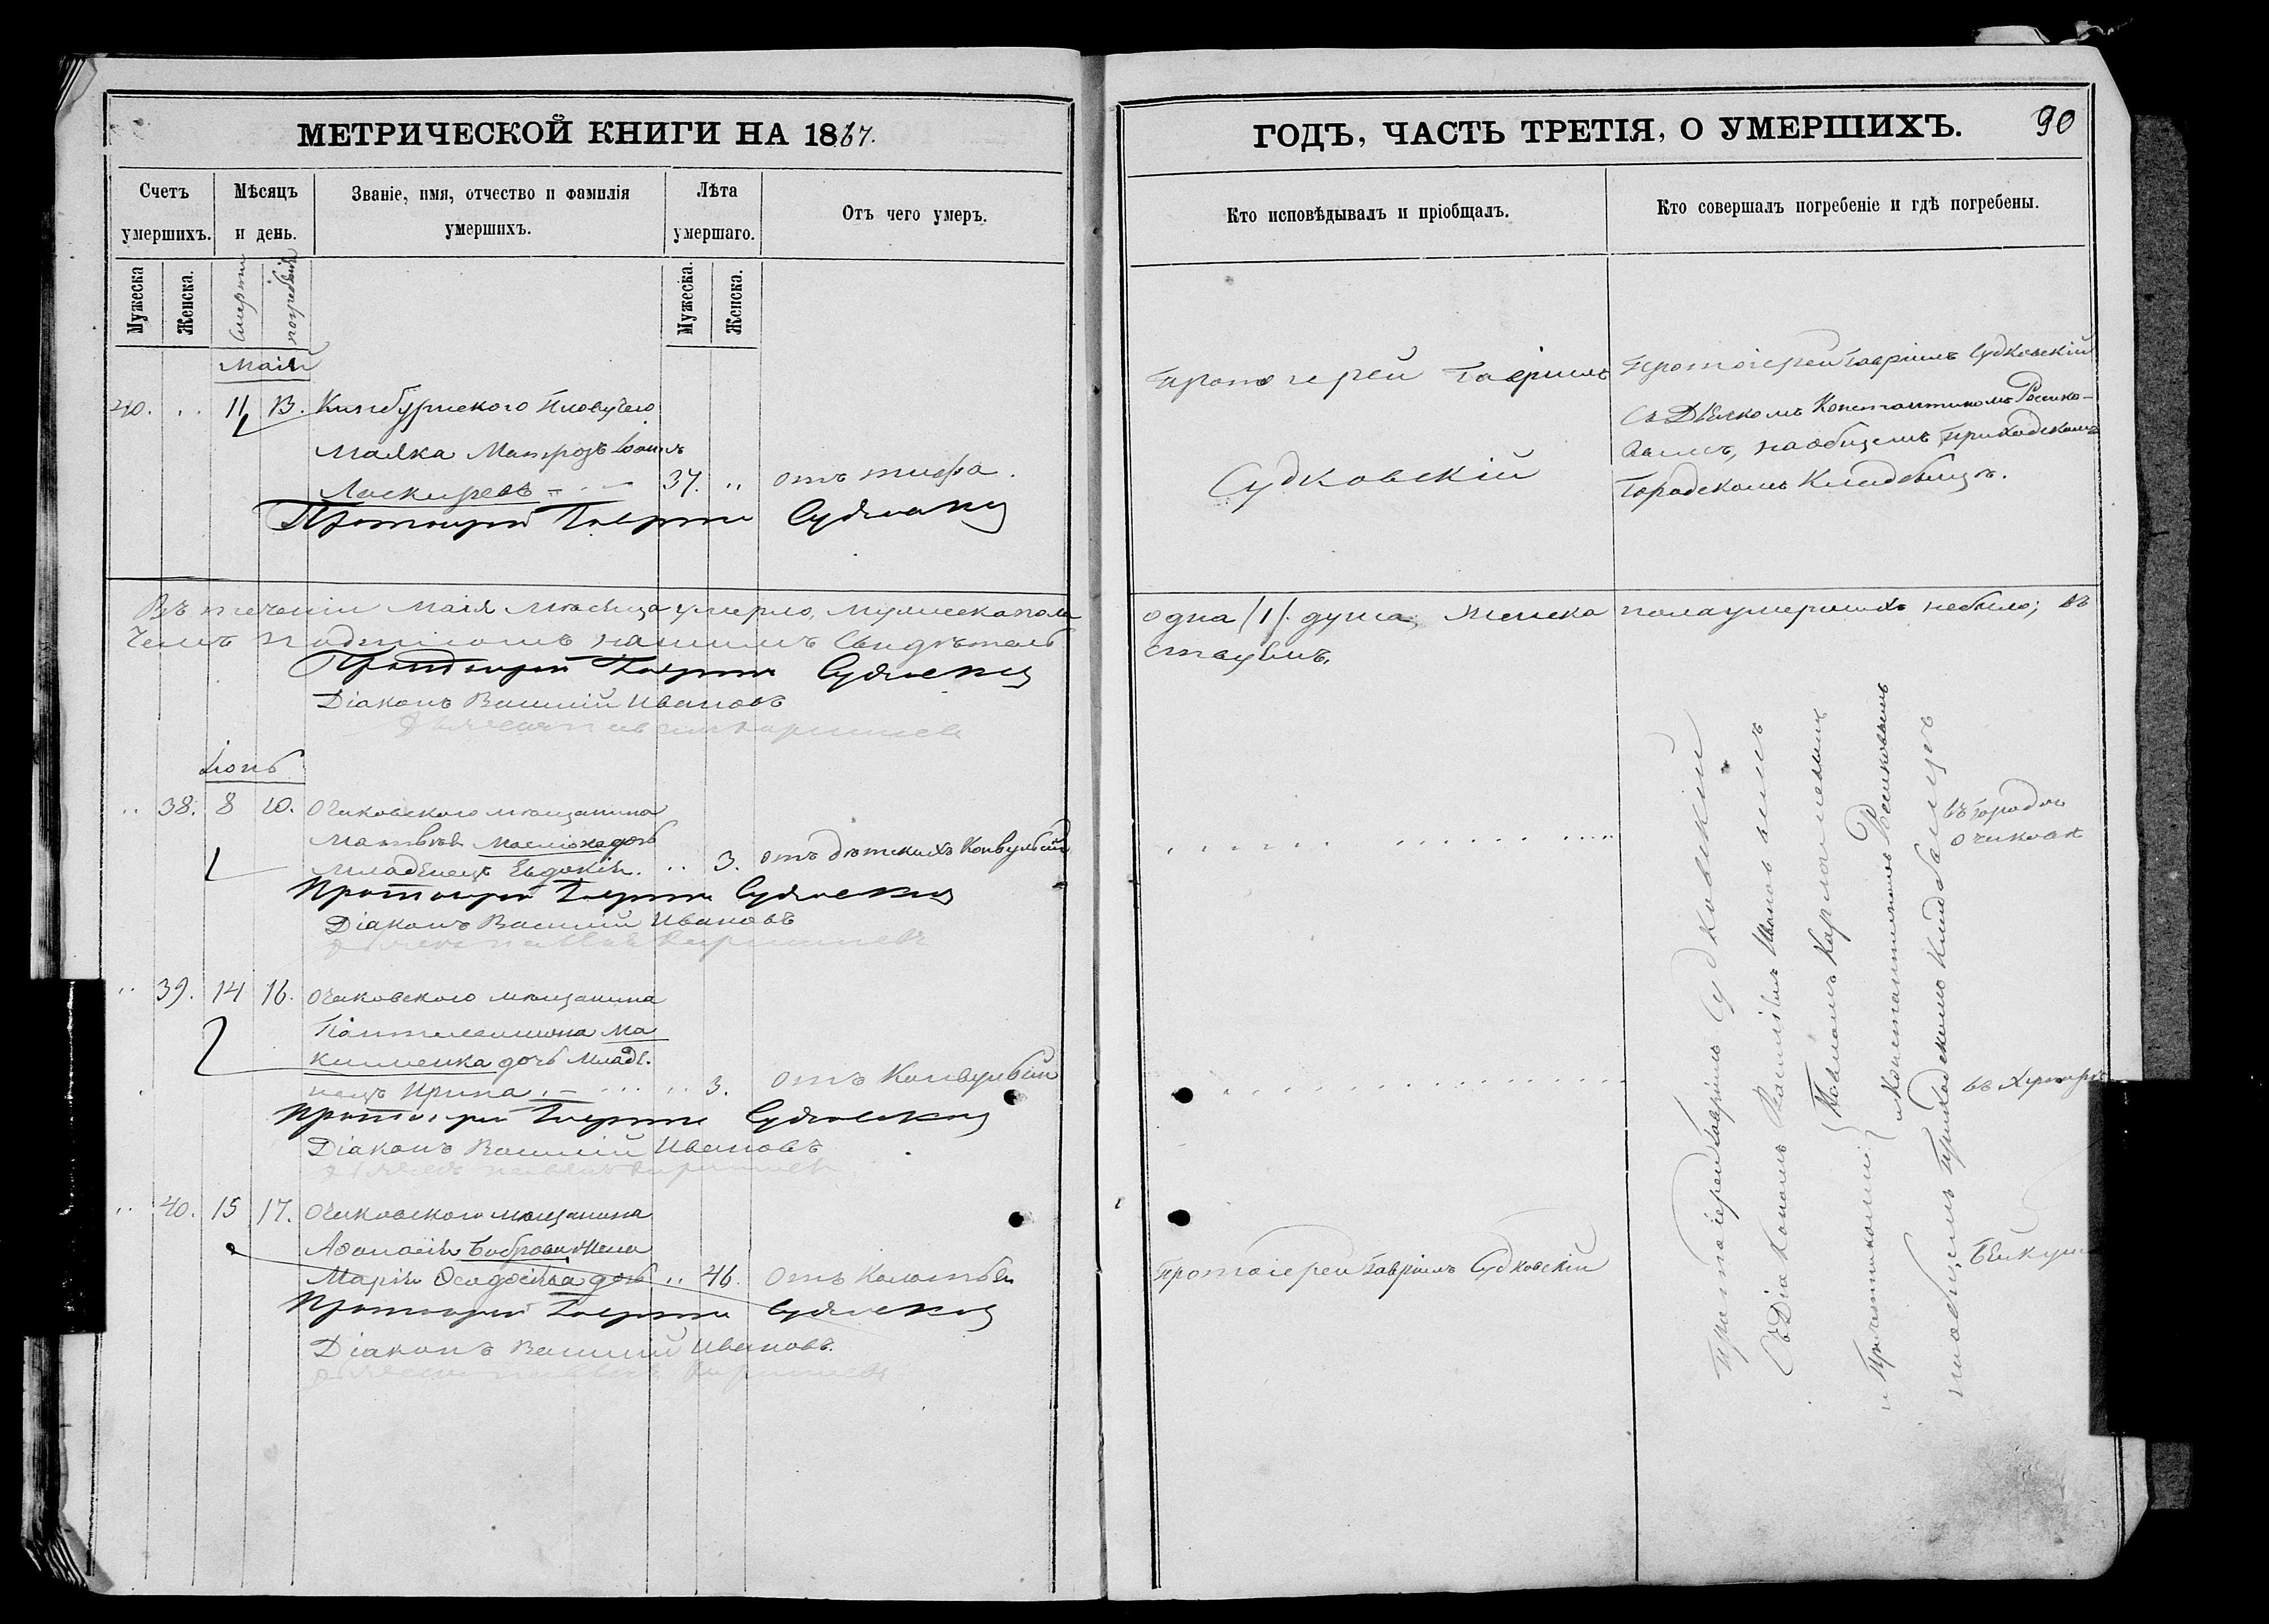 МЕТРИЧЕСКОЙ КНИГИ НА 1867.
Счетъ умершихъ.
Мѣсяцъ и день.
Званіе, имя, отчество и фамилія умершихъ.
Лѣта умершаго.
Отъ чего умеръ.
Мужеска
Женска.
Смерти
погребенія
Мужеска.
Женска.
Маія
40. 11 13. Кинбурнского Пловучего
Маяка Матрозъ Іоаннъ
Ласкиревъ 37. отъ тифа.
Протоіерей Гавріилъ Судковскій
Въ теченіи Маія Мѣсяца умерло, мужеска пола
чемъ подписомъ нашимъ Свидѣтель
Протоіерей Гавріилъ Судковскій
Діаконъ Василій Ивановъ
Іюнь
38. 8 10. Очаковского мѣщанина
Матвѣя дочь
младенецъ Евдокія. 3. отъ дѣтскихъ Конвульсій
Протоіерей Гавріилъ Судковскій
Діаконъ Василій Ивановъ
39. 14 16. Очаковского мѣщанина
Пантелеимона Ма
кименка дочь Младе
нецъ Ирина 3. отъ Конвульсій
Протоіерей Гавріилъ Судковскій
Діаконъ Василій Ивановъ
40. 15 17. Очаковского мѣщанина
Афанасія Боброва жена
Марія дочь 46. отъ
Протоіерей Гавріилъ Судковскій
Діаконъ Василій Ивановъ.
ГОДЪ, ЧАСТЬ ТРЕТІЯ, О УМЕРШИХЪ.
90
Кто исповѣдывалъ и пріобщалъ.
Кто совершалъ погребеніе и гдѣ погребены.
Протоіерей Гавріилъ
Судковскій
Протоіерей Гавріилъ Судковскій
съ Дьячкомъ Константиномъ
на общемъ приходскомъ
Городскомъ Кладбищѣ.
одна /1/. душа, Женска пола умершихъ небыло; въ
ствуемъ.
Протоіерей Гавріилъ Судковскій
Протоіерей Гавріилъ Судковскій
Съ Діакономъ Василіемъ Ивановымъ
и Причетниками:
Павломъ
и Константиномъ
на общемъ Приходскомъ Кладбищѣ
въ Городѣ
Очаковѣ